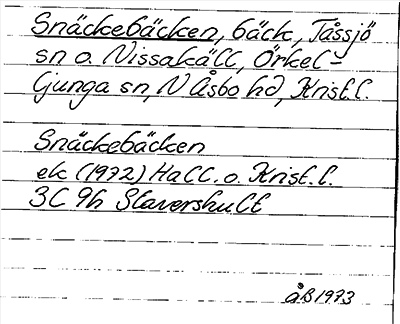 Snäckebäcken, bäck, Tåssjö
sn o. Nissakäll, Örkel-
ljunga sn, N Åsbo hd, Krist.l.
Snäckebäcken
ek (1972) Hall. o. Krist.l.
3C 9h Slavershult
ÅB 1973